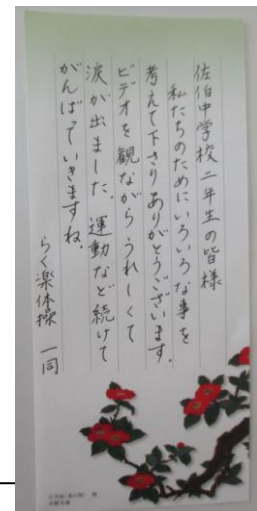 佐伯中学校二年生の皆様
私たちのためにいろいろな事を
考えて下さりありがとうございます。
ビデオを観ながらうれしくて
涙が出ました。運動など続けて
がんばっていきますね。
らく楽体操 一同